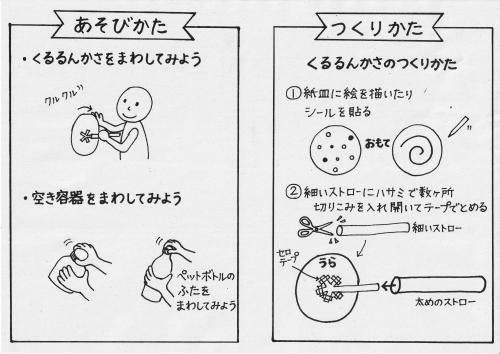 あそびかた
・くるるんかさをまわしてみよう
クルクル
・空き容器をまわしてみよう
ペットボトルの
ふたを
まわしてみよう
つくりかた
くるるんかさのつくりかた
①紙皿に絵を描いたり
シールを貼る
おもて
②細いストローにハサミで数ヶ所
切りこみを入れ開いてテープでとめる
細いストロー
セロ
テープ
うら
太めのストロー